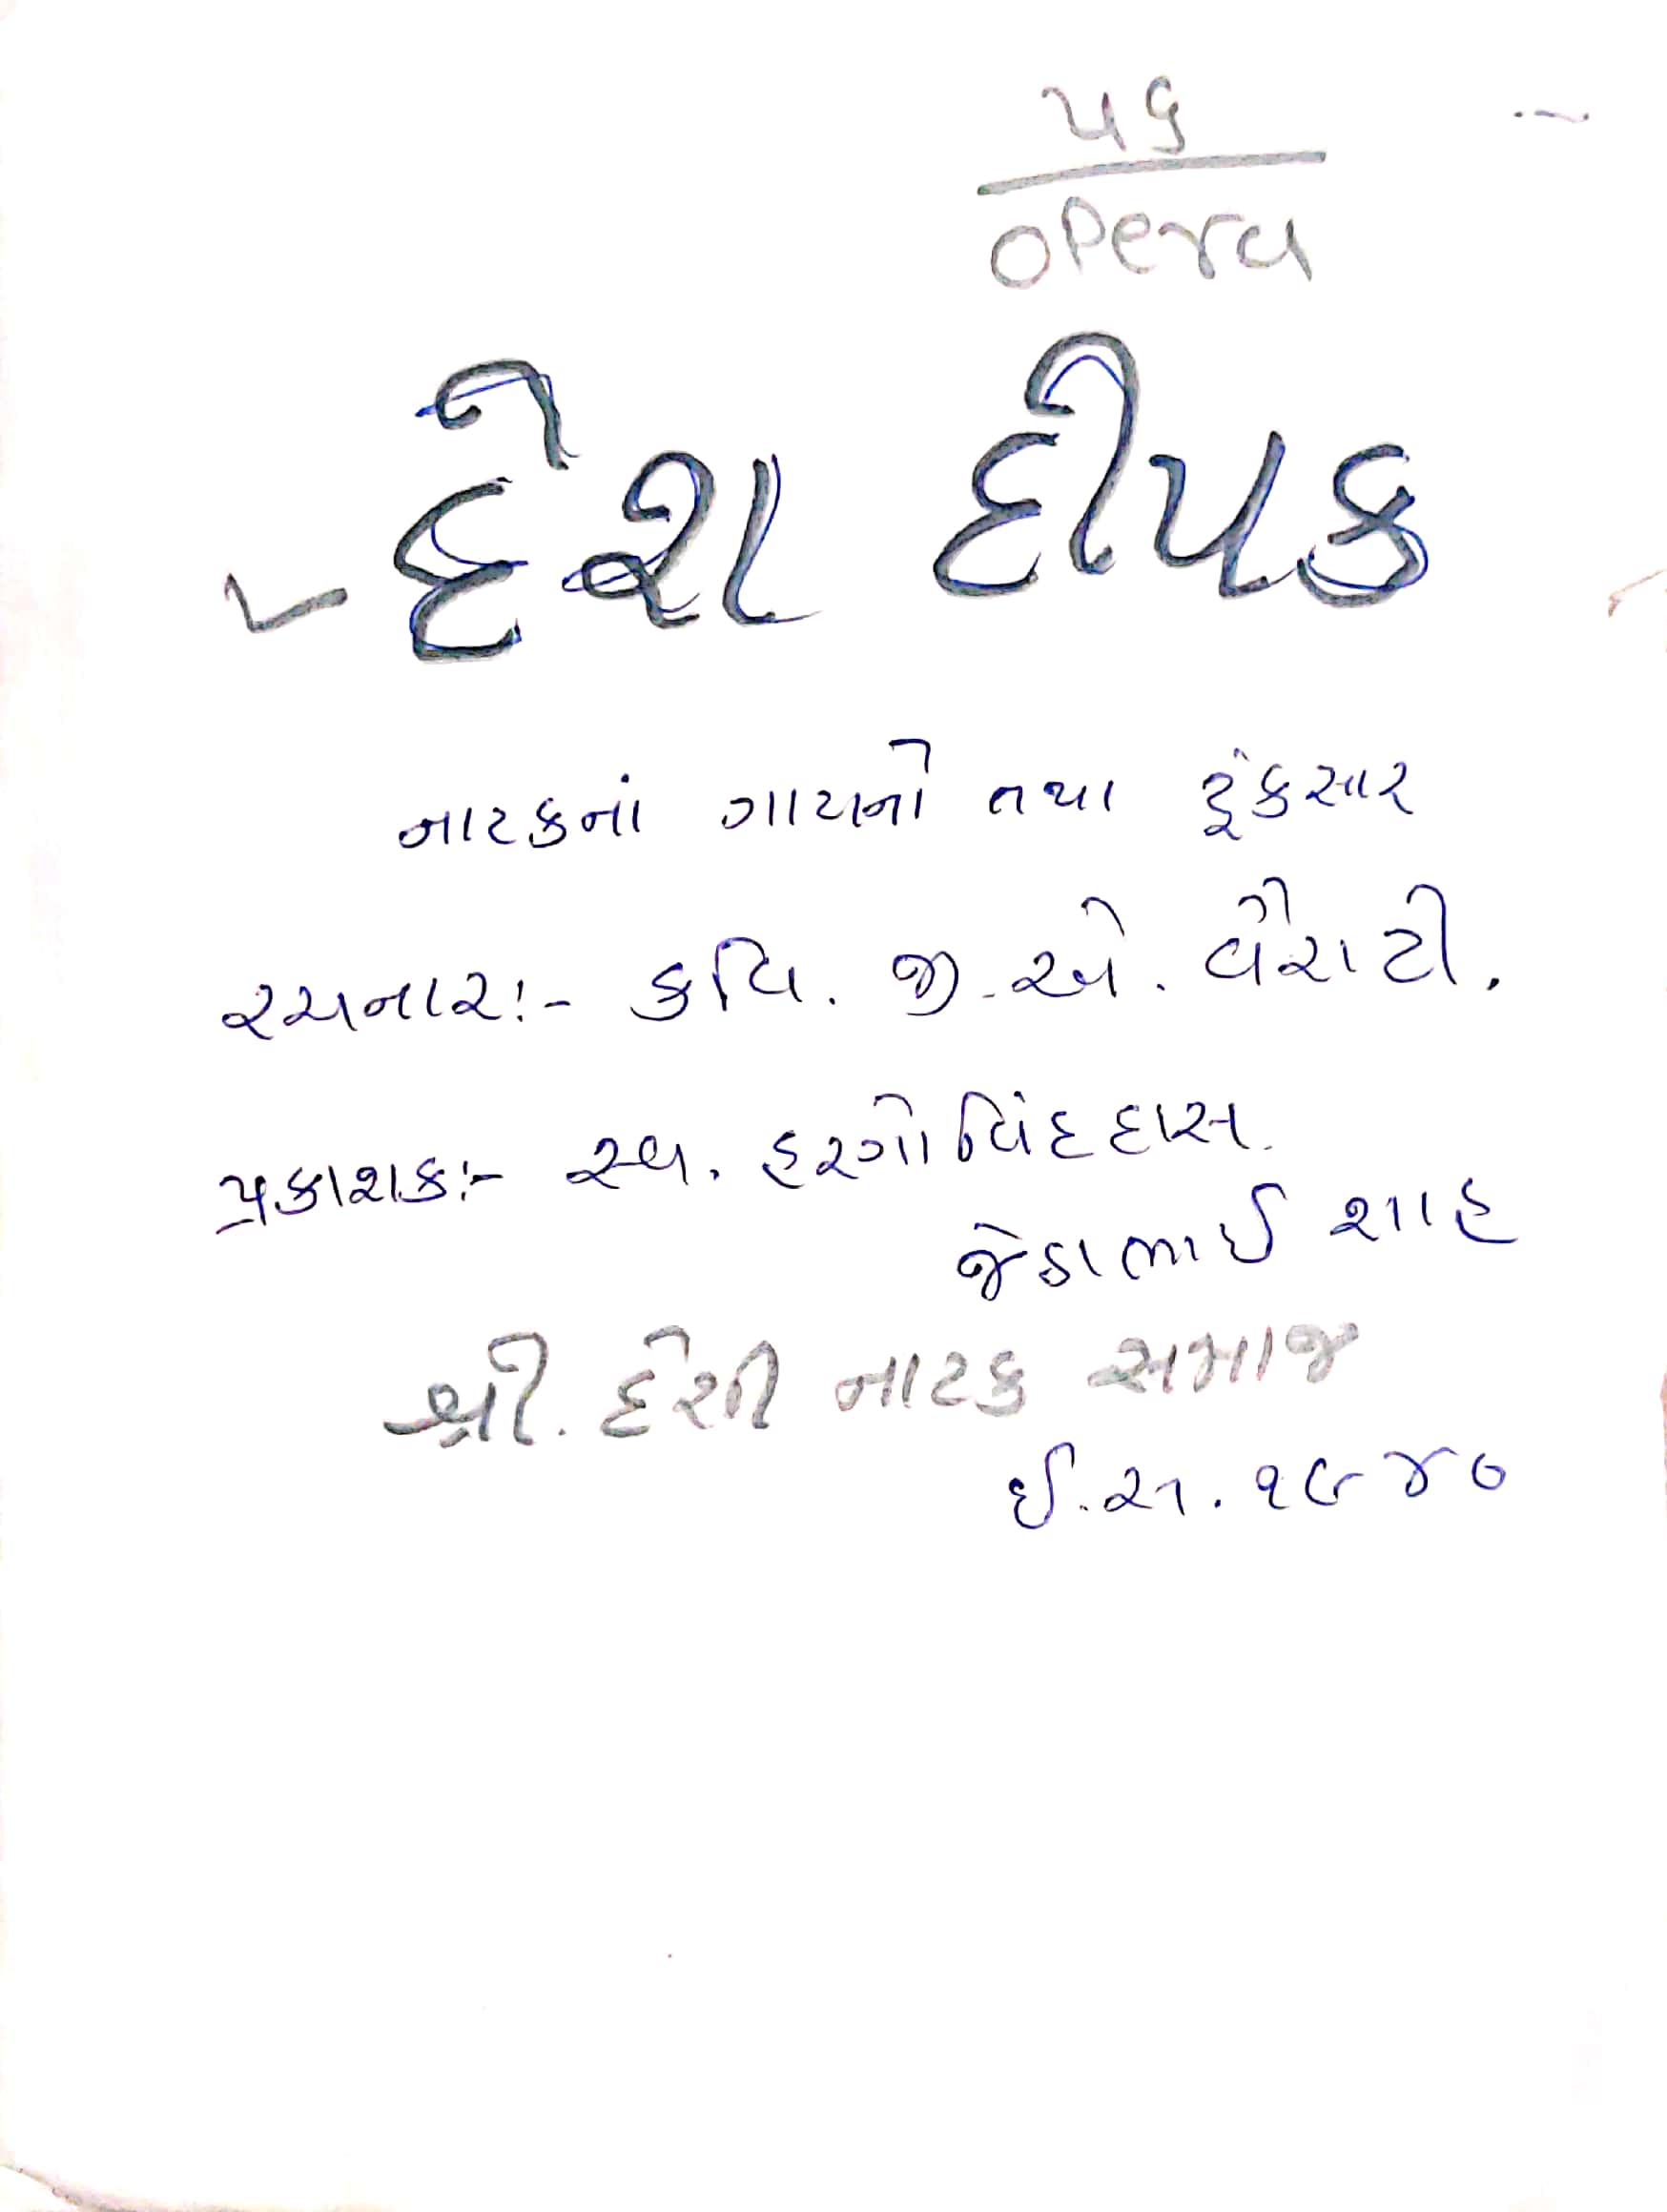 ૫૬
opera
દેશ દીપક
નાટકનાં ગાયનો તથા ટૂંકસાર
રચનાર:- કવિ. જી.એ. વૈરાટી.
પ્રકાશક:- સ્વ. હરગોવિંદદાસ.
જેઠાભાઈ શાહ
શ્રી. દેશી નાટક સમાજ
ઈ.સ. ૧૯૪૦